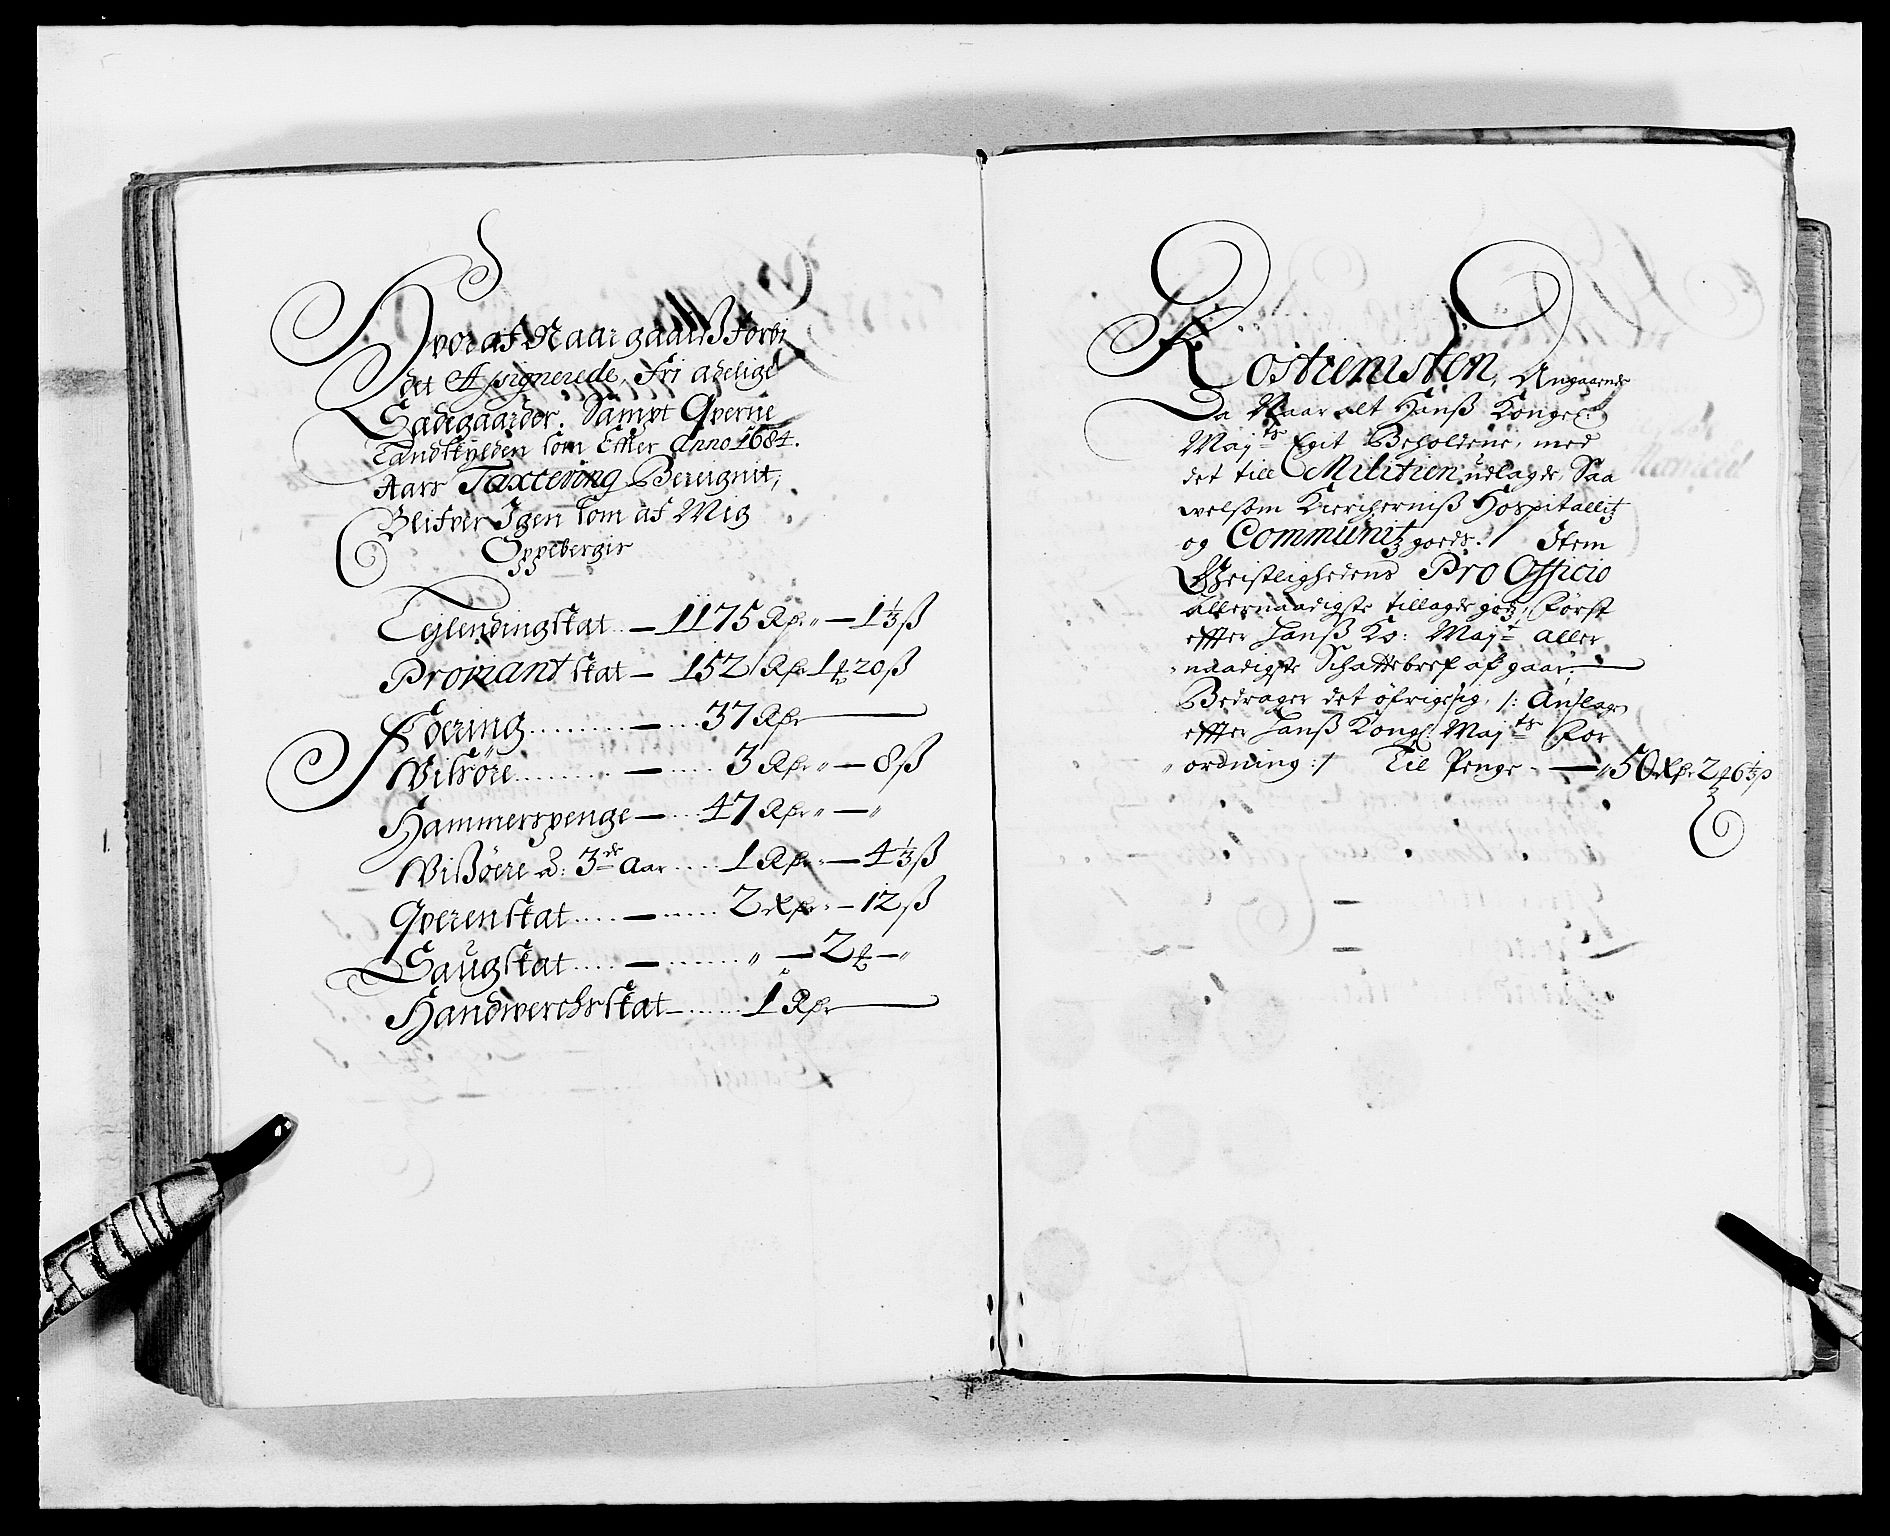 Hvoraf Naar gaarß forbi
det Assignerede, fri adelige
Sædegaarder, Sampt Qverne
Landskylden som Effter Anno 1684.
Aars Taxtering Bereignit,
Blifver Igen som af Mig
Oppebergis
Lejlendingskat — 1175 Rdr „ — 1⅓ ß
Proviant skat — 152 Rdr 1 ℔ 20 ß
Foering — 37 Rdr —
Wissøre — 3 Rdr „ — 8 ß
Hammerspenge — 47 Rdr „ — „
Wissøere d: 3de Aar 1 Rdr „ — 4⅓ ß
Qverenskat — 2 Rdr „ — 12 ß
Saugskat — „ — 2 ℔ — „
Handwerchsskat — 1 Rdr —
Rostienisten, Angaaende
Da Naar alt Hanß Kongel:
Maj:ts Eget Beholdene, med
det till Militien udlagde, Saa
velsom Kircherniß Hospitalitz
og Communitz goeds. / Item
Geistlighedens Pro Officio
Allernaadigste tillagde godz, Først
effter Hanß Ko: Maj:t Aller
naadigste Schattebref afgaar,
Bedrager det øfrige sig, /: Anslagen
effter Hanß Kongl: Maj:ts For
ordning :/ Til Penge — „ 50 Rdr 2 ℔ 6⅓ ß